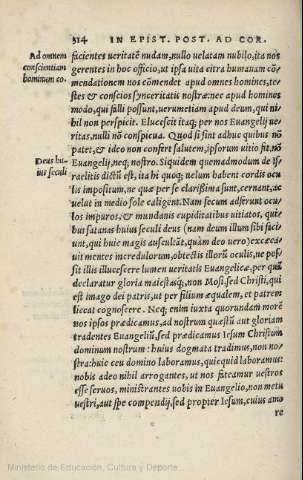 314 IN EPIST. POST. AD COR.
Ad omnem
conscientiam
hominum co.
facientes ueritatē nudam, nullo uelatam nubilo, ita nos
gerentes in hoc officio, ut ipsa uita citra humanam cō-
mendationem nos cōmendet apud omnes homines, te-
stes & conscios synceritatis nostræ: nec apud homines
modo, qui falli possunt, uerumetiam apud deum, qui ni-
hil non perspicit. Elucescit itaq; per nos Euangelij ue-
ritas, nulli nō conspicua. Quod si sint adhuc quibus nō
patet, & ideo non confert salutem, ipsorum uitio fit, nō
Deus hu-
ius seculi
Euangelij, neq; nostro. Siquidem quemadmodum de is-
raelitis dictū est, ita hi quoq; uelum habent cordis ocu
lis impositum, ne quæ per se clarissima sunt, cernant, ac
uelut in medio sole caligent. Nam secum adferunt ocu-
los impuros, & mundanis cupiditatibus uitiatos, qui-
bus satanas huius seculi deus (nam deum illum sibi faci-
unt, qui huic magis auscultāt, quàm deo uero) excæca-
uit mentes incredulorum, obtectis illorū oculis, ne pos-
sit illis illucescere lumen ueritatis Euangelicæ, per quā
declaratur gloria maiestasq́;, non Mosi, sed Christi, qui
est imago dei patris, ut per filium æqualem, et patrem
liceat cognoscere. Neq; enim iuxta quorundam morē
nos ipsos prædicamus, ad nostrum quæstū aut gloriam
tradentes Euangeliū, sed prædicamus Iesum Christum
dominum nostrum: huius dogmata tradimus, non no-
stra: huic ceu domino laboramus, quicquid laboramus:
nobis adeo nihil arrogantes, ut nos fateamur uestros
esse seruos, ministrantes uobis in Euangelio, non metu
uestri, aut spe compendij, sed propter Iesum, cuius amo
re
Ministerio de Educación, Cultura y Deporte...